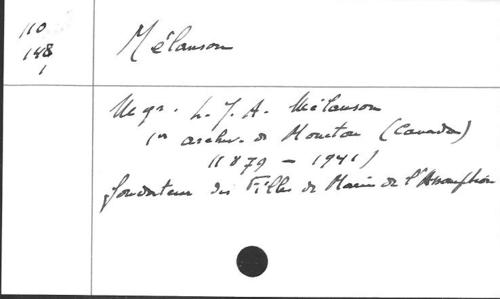 110
148
1
Mélanson
Mgr. L. J. A. Mélanson
1er archev. de Moncton (Canada)
(1879 - 1941)
fondateur des Filles de Marie de l'Assomption